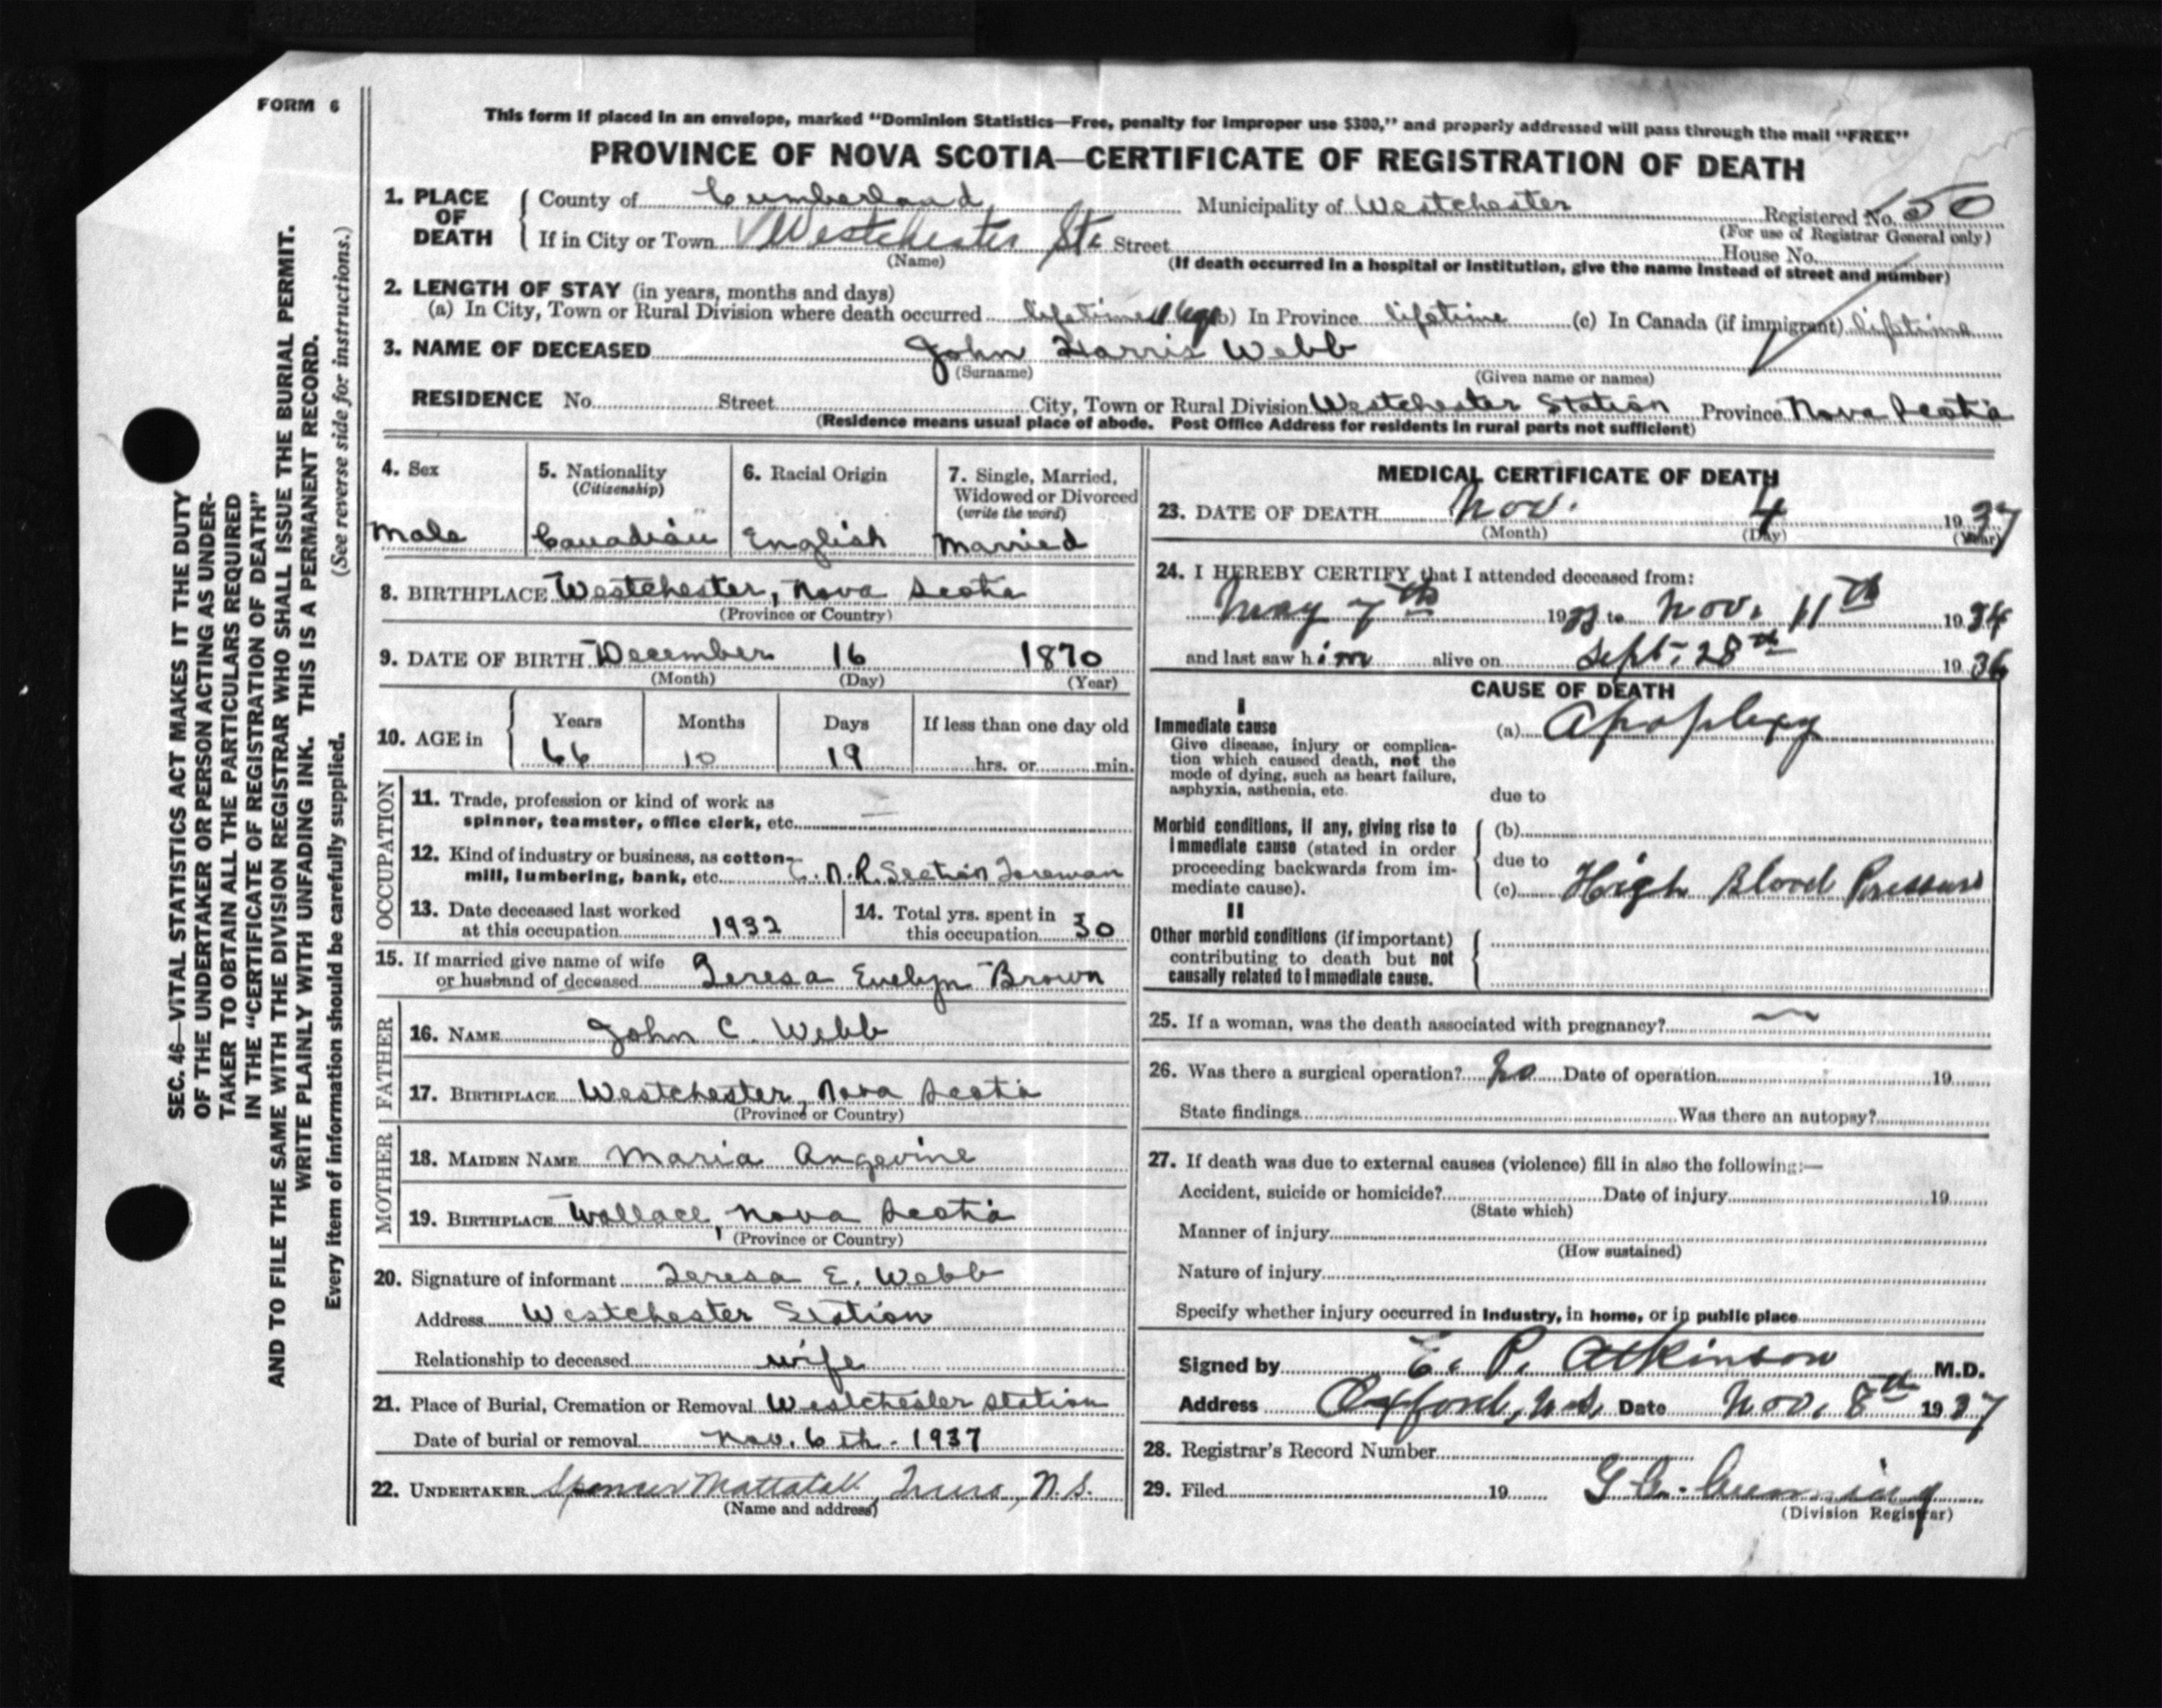 FORM 6
This form if placed in an envelope, marked "Dominion Statistics—Free, penalty for improper use $300," and properly addressed will pass through the mail "FREE"
PROVINCE OF NOVA SCOTIA—CERTIFICATE OF REGISTRATION OF DEATH
1. PLACE OF DEATH County of Cumberland Municipality of Westchester Registered No. 50
(For use of Registrar General only)
If in City or Town Westchester Sta Street House No.
(Name) (If death occurred in a hospital or institution, give the name instead of street and number)
2. LENGTH OF STAY (in years, months and days)
(a) In City, Town or Rural Division where death occurred lifetime (b) In Province lifetime (c) In Canada (if immigrant) lifetime
3. NAME OF DECEASED John Harris Webb
(Surname) (Given name or names)
RESIDENCE No. Street City, Town or Rural Division Westchester Station Province Nova Scotia
(Residence means usual place of abode. Post Office Address for residents in rural parts not sufficient)
4. Sex
Male
5. Nationality
(Citizenship)
Canadian
6. Racial Origin
English
7. Single, Married,
Widowed or Divorced
(write the word)
Married
8. BIRTHPLACE Westchester, Nova Scotia
(Province or Country)
9. DATE OF BIRTH December 16 1870
(Month) (Day) (Year)
10. AGE in Years Months Days If less than one day old
66 10 19 hrs. or min.
OCCUPATION
11. Trade, profession or kind of work as
spinner, teamster, office clerk, etc. —
12. Kind of industry or business, as cotton-
mill, lumbering, bank, etc. C. N. R. Section Foreman
13. Date deceased last worked
at this occupation 1932
14. Total yrs. spent in
this occupation 30
15. If married give name of wife
or husband of deceased Teresa Evelyn Brown
FATHER
16. NAME John C. Webb
17. BIRTHPLACE Westchester, Nova Scotia
(Province or Country)
MOTHER
18. MAIDEN NAME Maria Angevine
19. BIRTHPLACE Wallace, Nova Scotia
(Province or Country)
20. Signature of informant Teresa E. Webb
Address Westchester Station
Relationship to deceased wife
21. Place of Burial, Cremation or Removal Westchester Station
Date of burial or removal Nov. 6th - 1937
22. UNDERTAKER Spencer Mattatall, Truro, N.S.
(Name and address)
MEDICAL CERTIFICATE OF DEATH
23. DATE OF DEATH Nov. 4 1937
(Month) (Day) (Year)
24. I HEREBY CERTIFY that I attended deceased from:
May 7th 19 to Nov. 11th 1934
and last saw him alive on Sept. 28th 1936
CAUSE OF DEATH
I
Immediate cause
Give disease, injury or complica-
tion which caused death, not the
mode of dying, such as heart failure,
asphyxia, asthenia, etc.
(a) Apoplexy
due to
Morbid conditions, if any, giving rise to
immediate cause (stated in order
proceeding backwards from im-
mediate cause).
(b)
due to
(c) High Blood Pressure
II
Other morbid conditions (if important)
contributing to death but not
causally related to immediate cause.
25. If a woman, was the death associated with pregnancy? —
26. Was there a surgical operation? No Date of operation 19
State findings Was there an autopsy?
27. If death was due to external causes (violence) fill in also the following:—
Accident, suicide or homicide? Date of injury 19
(State which)
Manner of injury
(How sustained)
Nature of injury
Specify whether injury occurred in industry, in home, or in public place
Signed by E. P. Atkinson M.D.
Address Oxford, N.S. Date Nov. 8th 1937
28. Registrar's Record Number
29. Filed 19 Cumming
(Division Registrar)
SEC. 46—VITAL STATISTICS ACT MAKES IT THE DUTY
OF THE UNDERTAKER OR PERSON ACTING AS UNDER-
TAKER TO OBTAIN ALL THE PARTICULARS REQUIRED
IN THE "CERTIFICATE OF REGISTRATION OF DEATH"
AND TO FILE THE SAME WITH THE DIVISION REGISTRAR WHO SHALL ISSUE THE BURIAL PERMIT.
WRITE PLAINLY WITH UNFADING INK. THIS IS A PERMANENT RECORD.
Every item of information should be carefully supplied. (See reverse side for instructions.)